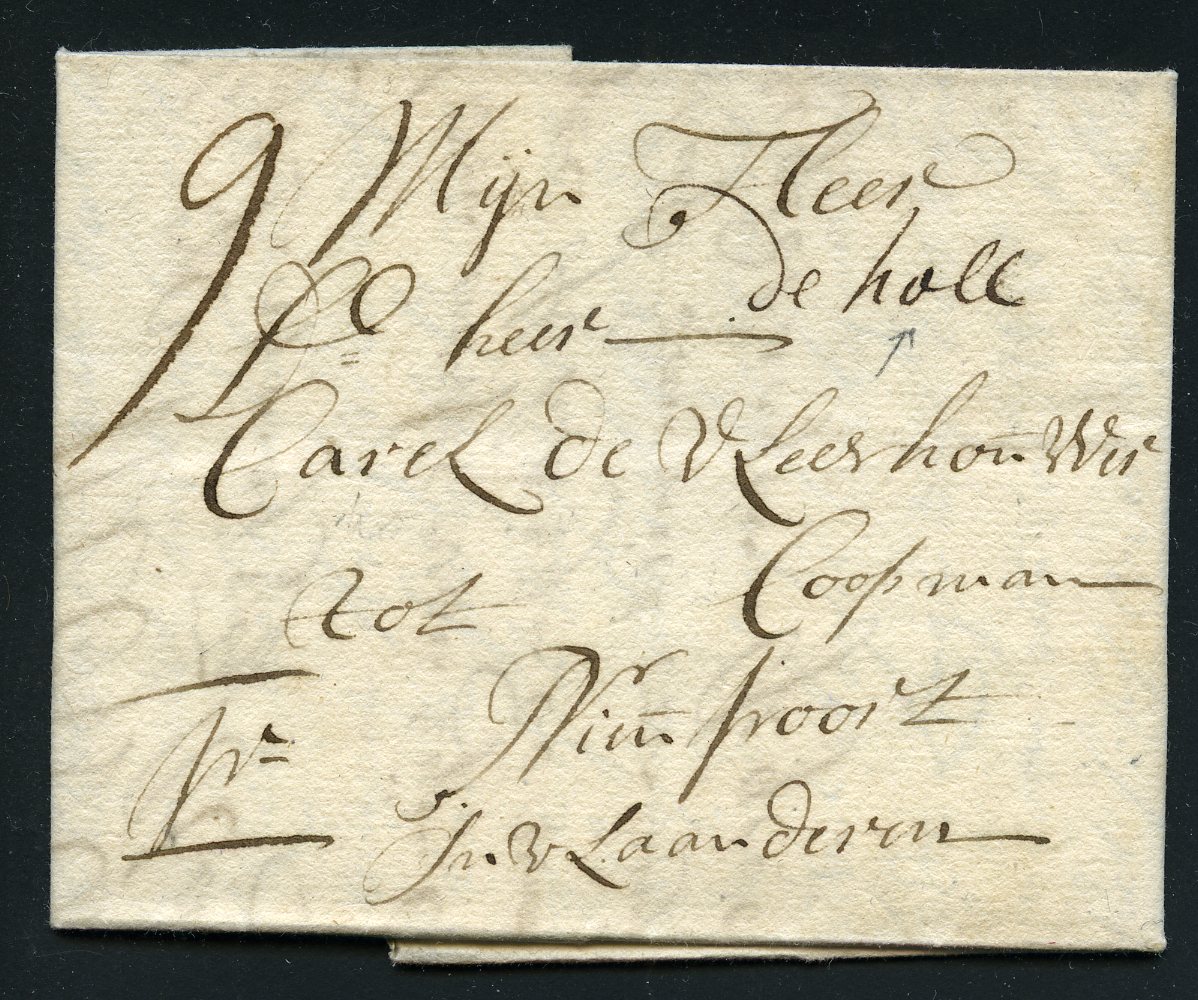 9 Mijn Heer
de holl
heer
Carel de Vleeshouwer
Coopman
tot
Nieupoort
fr
in vlaanderen